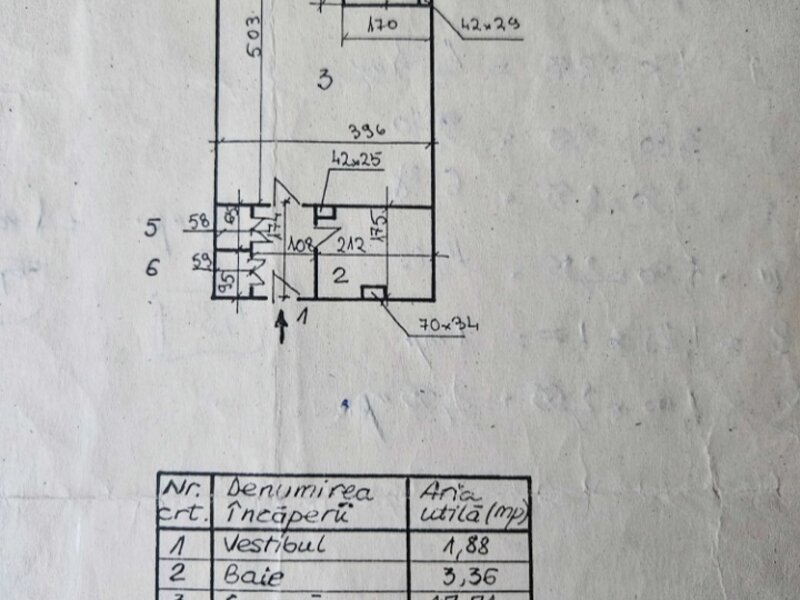 503
170
42x29
3
396
42x25
5
58
174
175
108
212
6
59
95
2
1
70x34
Nr. crt.
Denumirea încăperii
Aria utilă (mp)
1 Vestibul 1,88
2 Baie 3,36